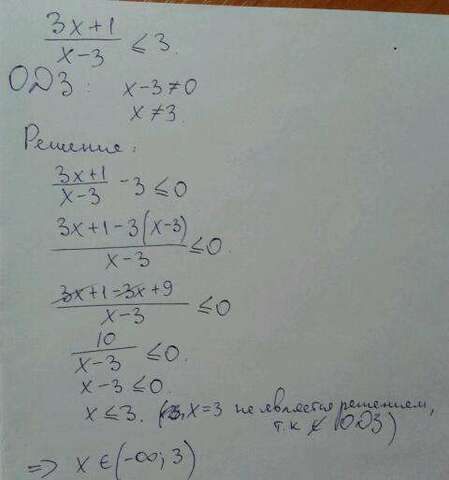 (3x+1)/(x-3) ≤ 3.
ОДЗ: x-3≠0
x≠3.
Решение:
(3x+1)/(x-3) -3≤0
(3x+1-3(x-3))/(x-3) ≤0.
(3x+1-3x+9)/(x-3) ≤0
10/(x-3) ≤0.
x-3≤0.
x≤3. x=3 не является решением,
т.к ОДЗ)
=> x∈(-∞; 3)